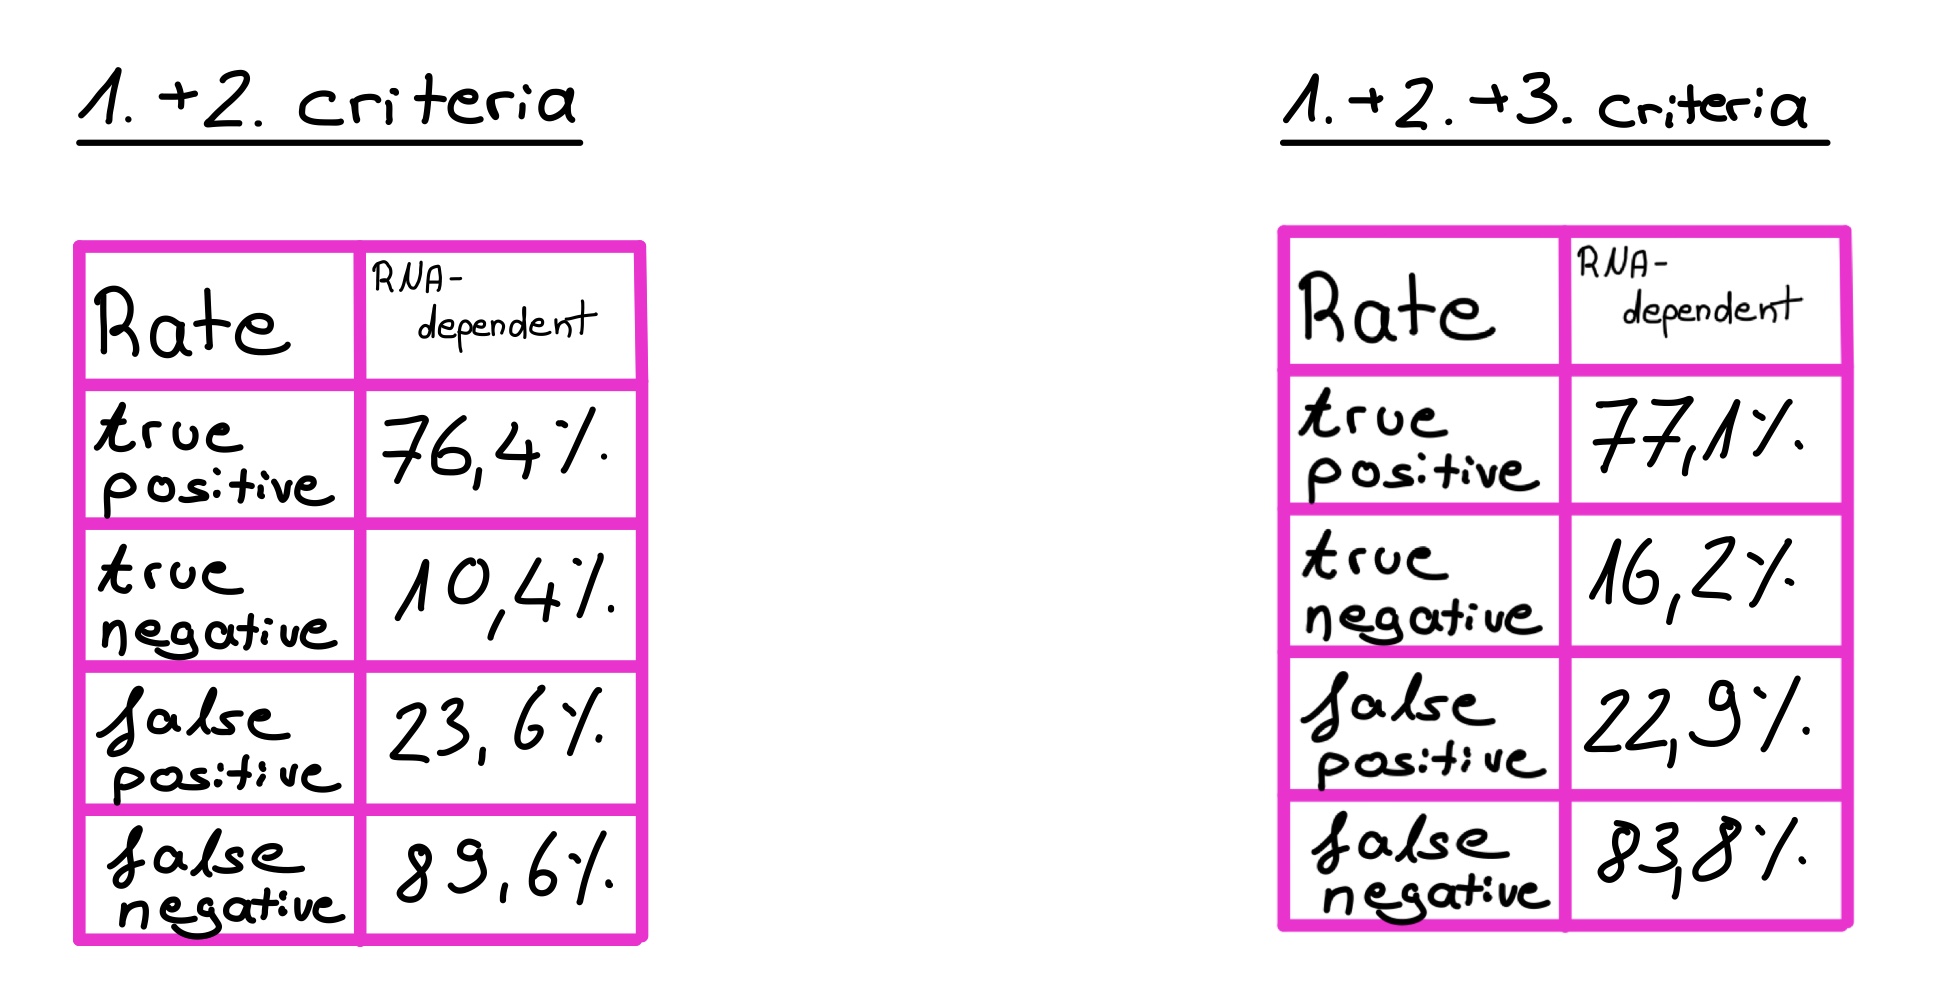 1. +2. criteria
Rate
RNA-
dependent
true
positive
76,4%
true
negative
10,4%
false
positive
23,6%
false
negative
89,6%
1.+2.+3. criteria
Rate
RNA-
dependent
true
positive
77,1%
true
negative
16,2%
false
positive
22,9%
false
negative
83,8%